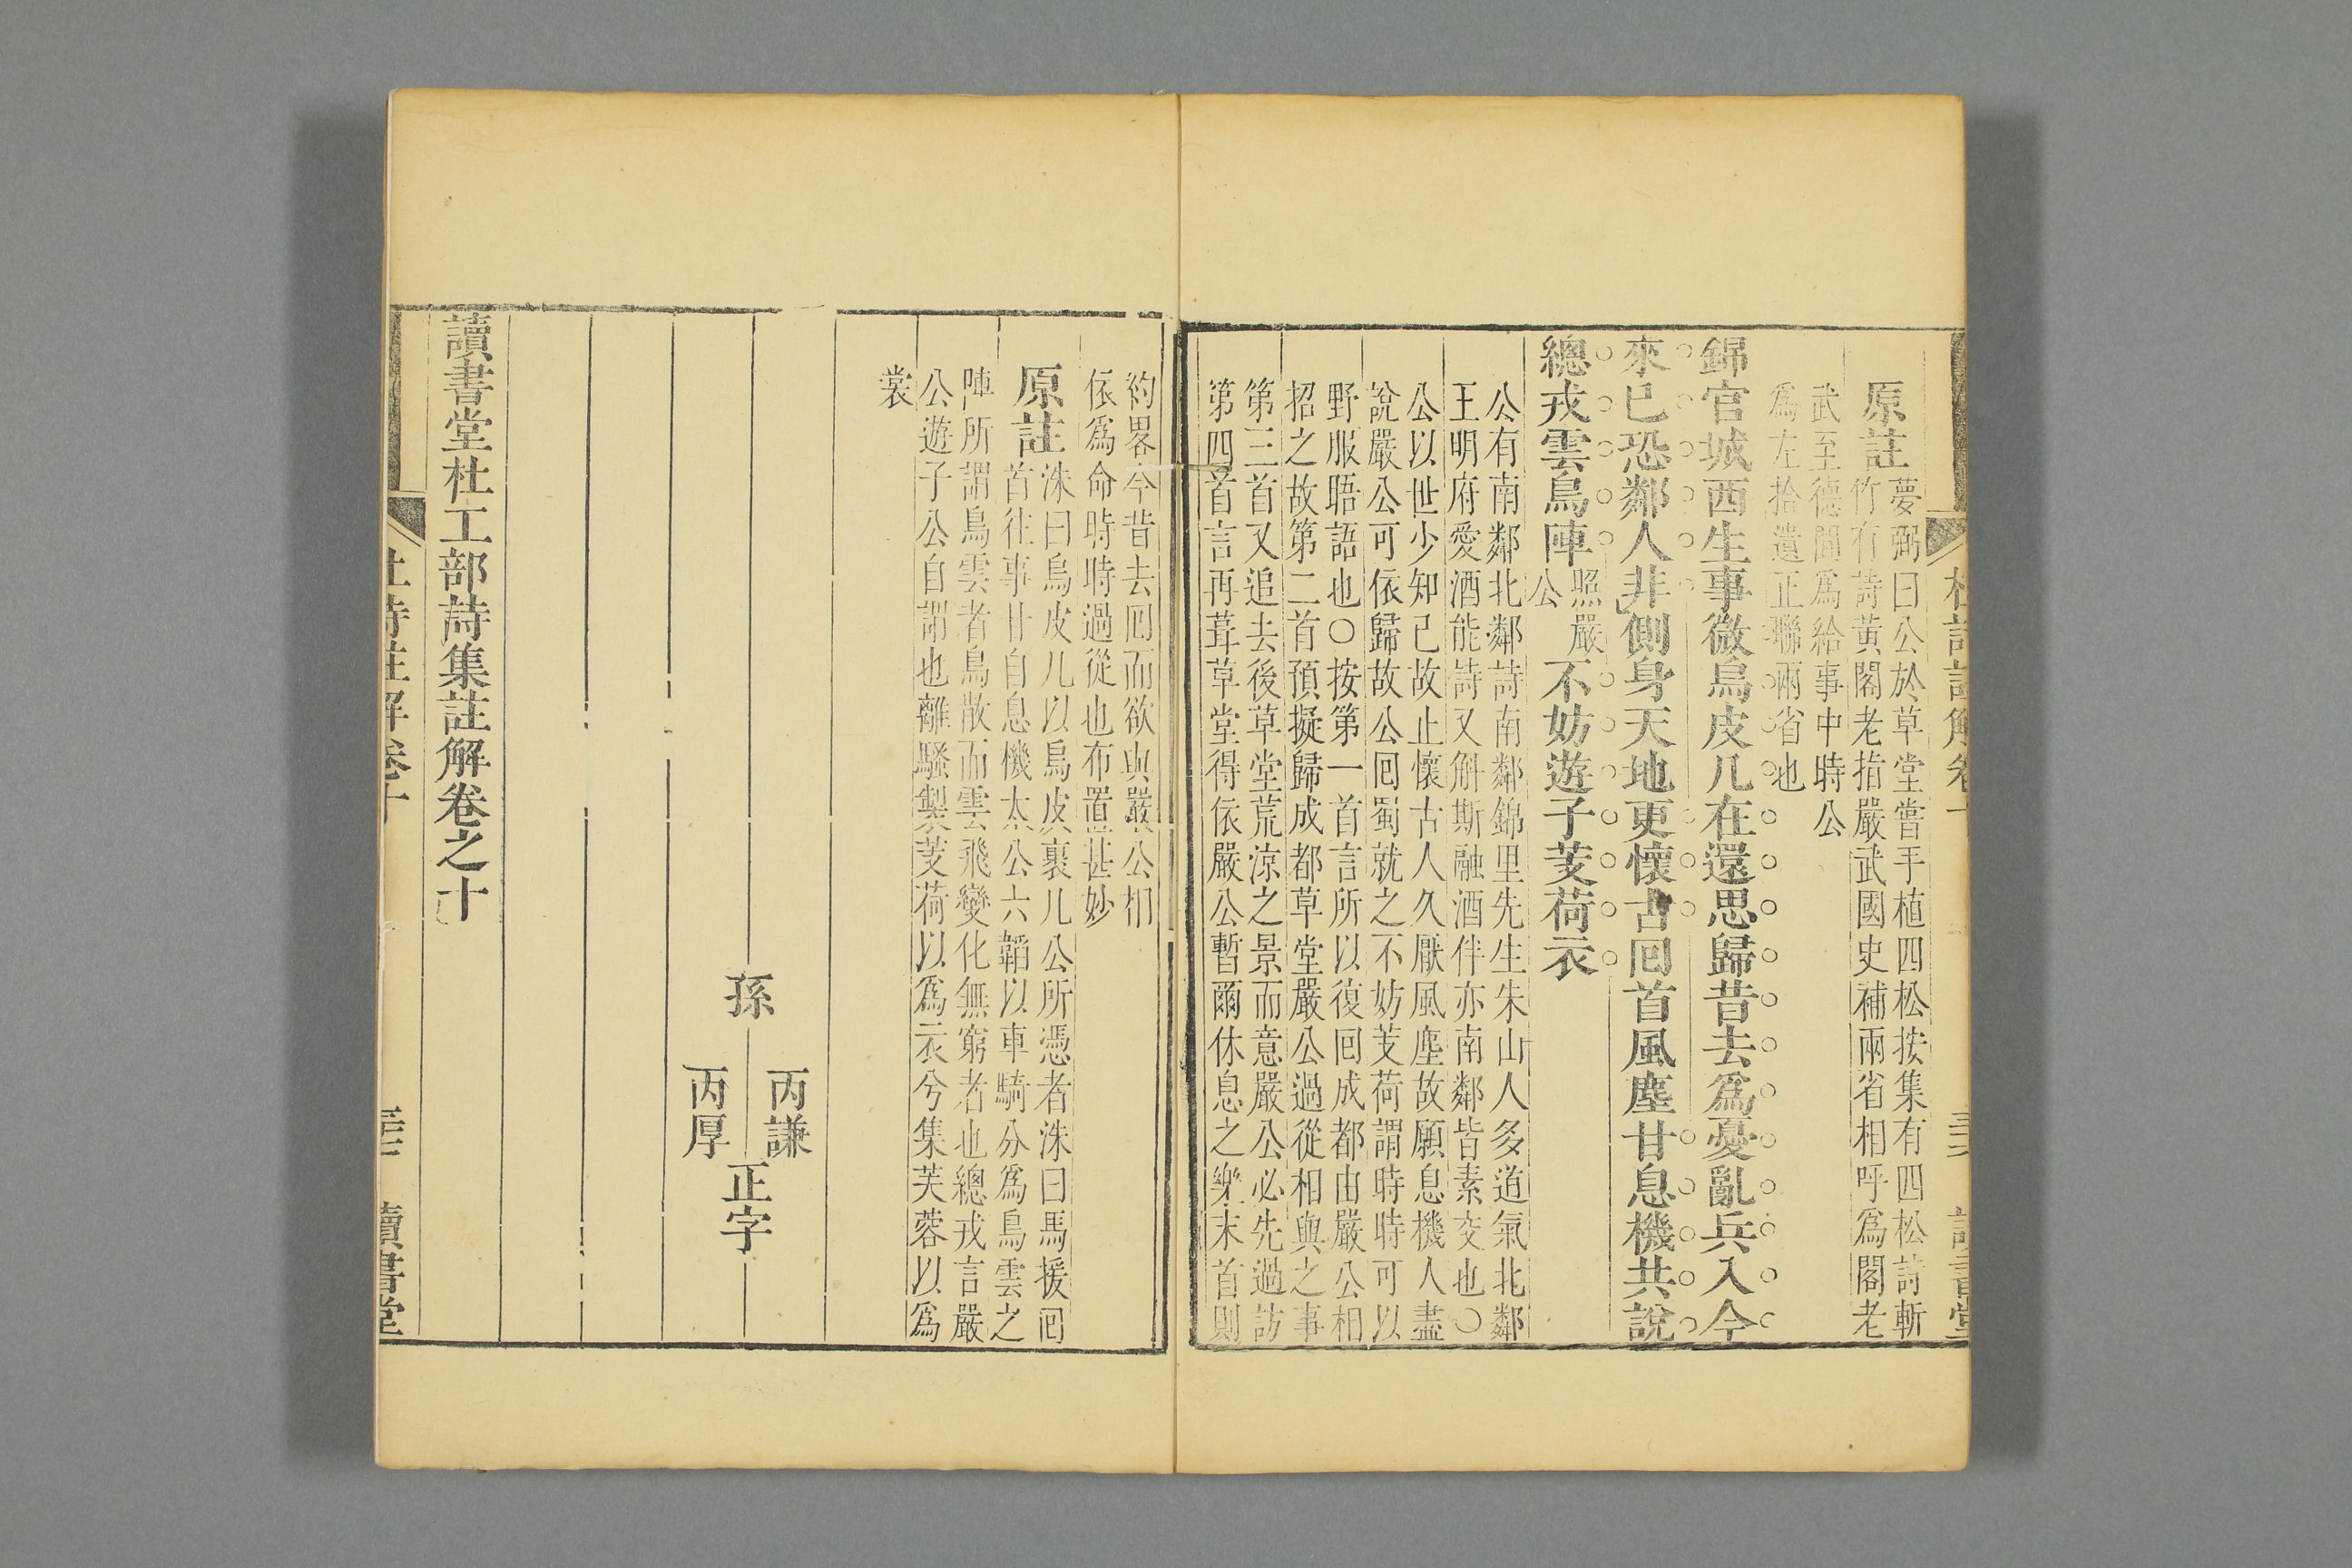 原註
夢弼曰公於草堂嘗手植四松按集有四松詩斬
竹有詩黄閣老指嚴武國史補兩省相呼爲閣老
武至德間爲給事中時公
爲左拾遺正聯兩省也
錦官城西生事微烏皮几在還思歸昔去爲憂亂兵入今
來已恐鄰人非側身天地更懷古囘首風塵甘息機共說
總戎雲鳥陣
照嚴
公
不妨遊子芰荷衣
公有南鄰北鄰詩南鄰錦里先生朱山人多道氣北鄰
王明府愛酒能詩又斛斯融酒伴亦南鄰皆素交也○
公以世少知己故止懷古人久厭風塵故願息機人盡
說嚴公可依歸故公囘蜀就之不妨芰荷謂時時可以
野服晤語也○按第一首言所以復囘成都由嚴公相
招之故第二首預擬歸成都草堂嚴公過從相與之事
第三首又追去後草堂荒涼之景而意嚴公必先過訪
第四首言再葺草堂得依嚴公暫爾休息之樂末首則
約畧今昔去囘而欲與嚴公相
依爲命時時過從也布置甚妙
原註
洙曰烏皮几以烏皮裹几公所憑者洙曰馬援囘
首往事甘自息機太公六韜以車騎分爲鳥雲之
陣所謂鳥雲者鳥散而雲飛變化無窮者也總戎言嚴
公遊子公自謂也離騷製芰荷以爲衣兮集芙蓉以爲
裳
孫
丙謙
丙厚
正字
讀書堂杜工部詩集註解卷之十
讀書堂